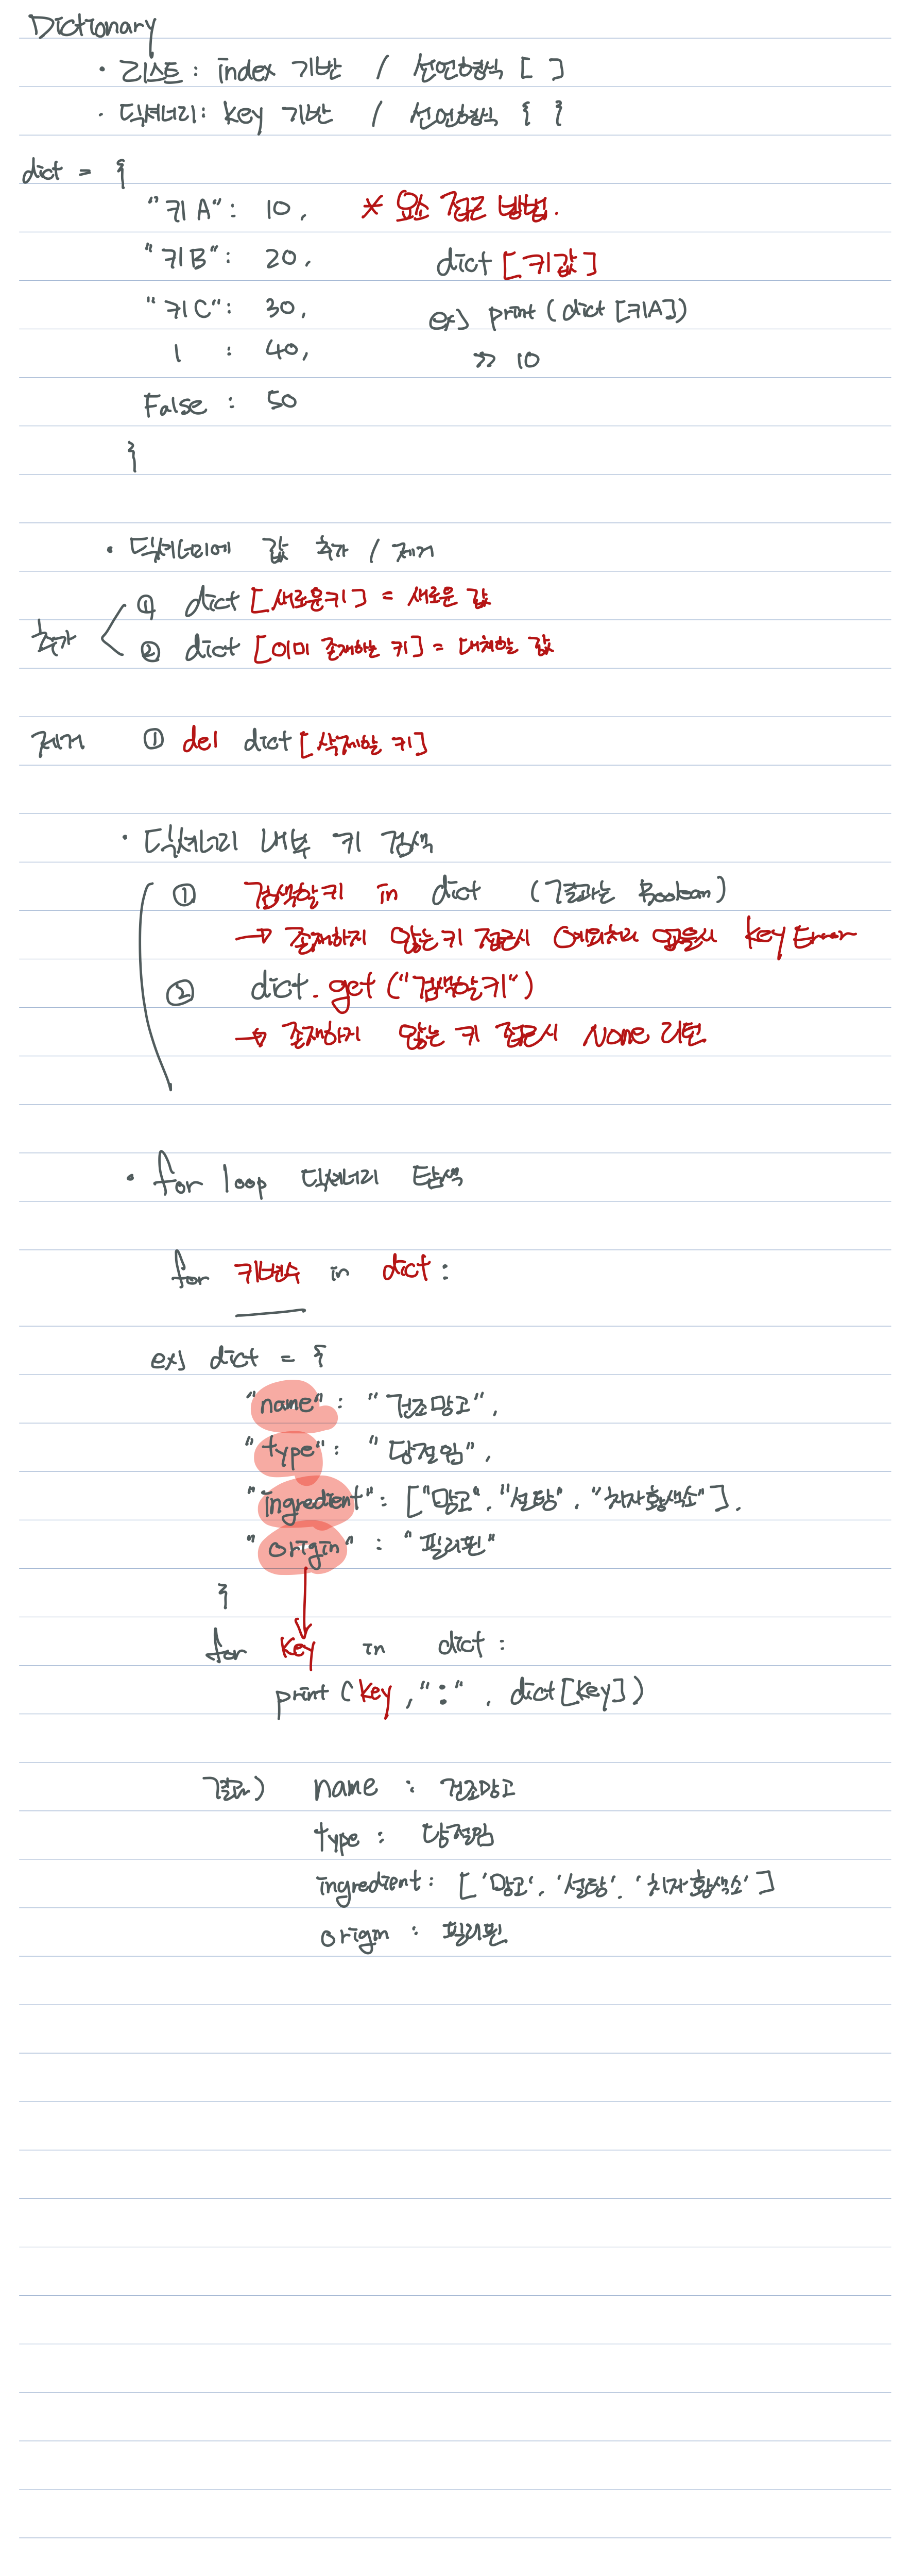 Dictionary
· 리스트 : index 기반 / 선언형식 [ ]
· 딕셔너리 : key 기반 / 선언형식 { }
dict = {
"키A" : 10, * 요소 접근 방법.
"키B" : 20, dict [키값]
"키C" : 30, ex) print (dict [키A])
1 : 40, >> 10
False : 50
}
· 딕셔너리에 값 추가 / 제거
① dict [새로운키] = 새로운 값
추가
② dict [이미 존재하는 키] = 대체할 값
제거 ① del dict [삭제할 키]
· 딕셔너리 내부 키 검색
① 검색할키 in dict (결과는 Boolean)
→ 존재하지 않는키 접근시 예외처리 없을시 key Error
② dict.get ("검색할키")
→ 존재하지 않는 키 접근시 None 리턴
· for loop 딕셔너리 탐색
for 키변수 in dict :
ex) dict = {
"name" : "건조망고",
"type" : "당절임",
"ingredient" : ["망고", "설탕", "치자황색소"],
"origin" : "필리핀"
}
for key in dict :
print (key, ":", dict[key])
결과) name : 건조망고
type : 당절임
ingredient : ['망고', '설탕', '치자황색소']
origin : 필리핀